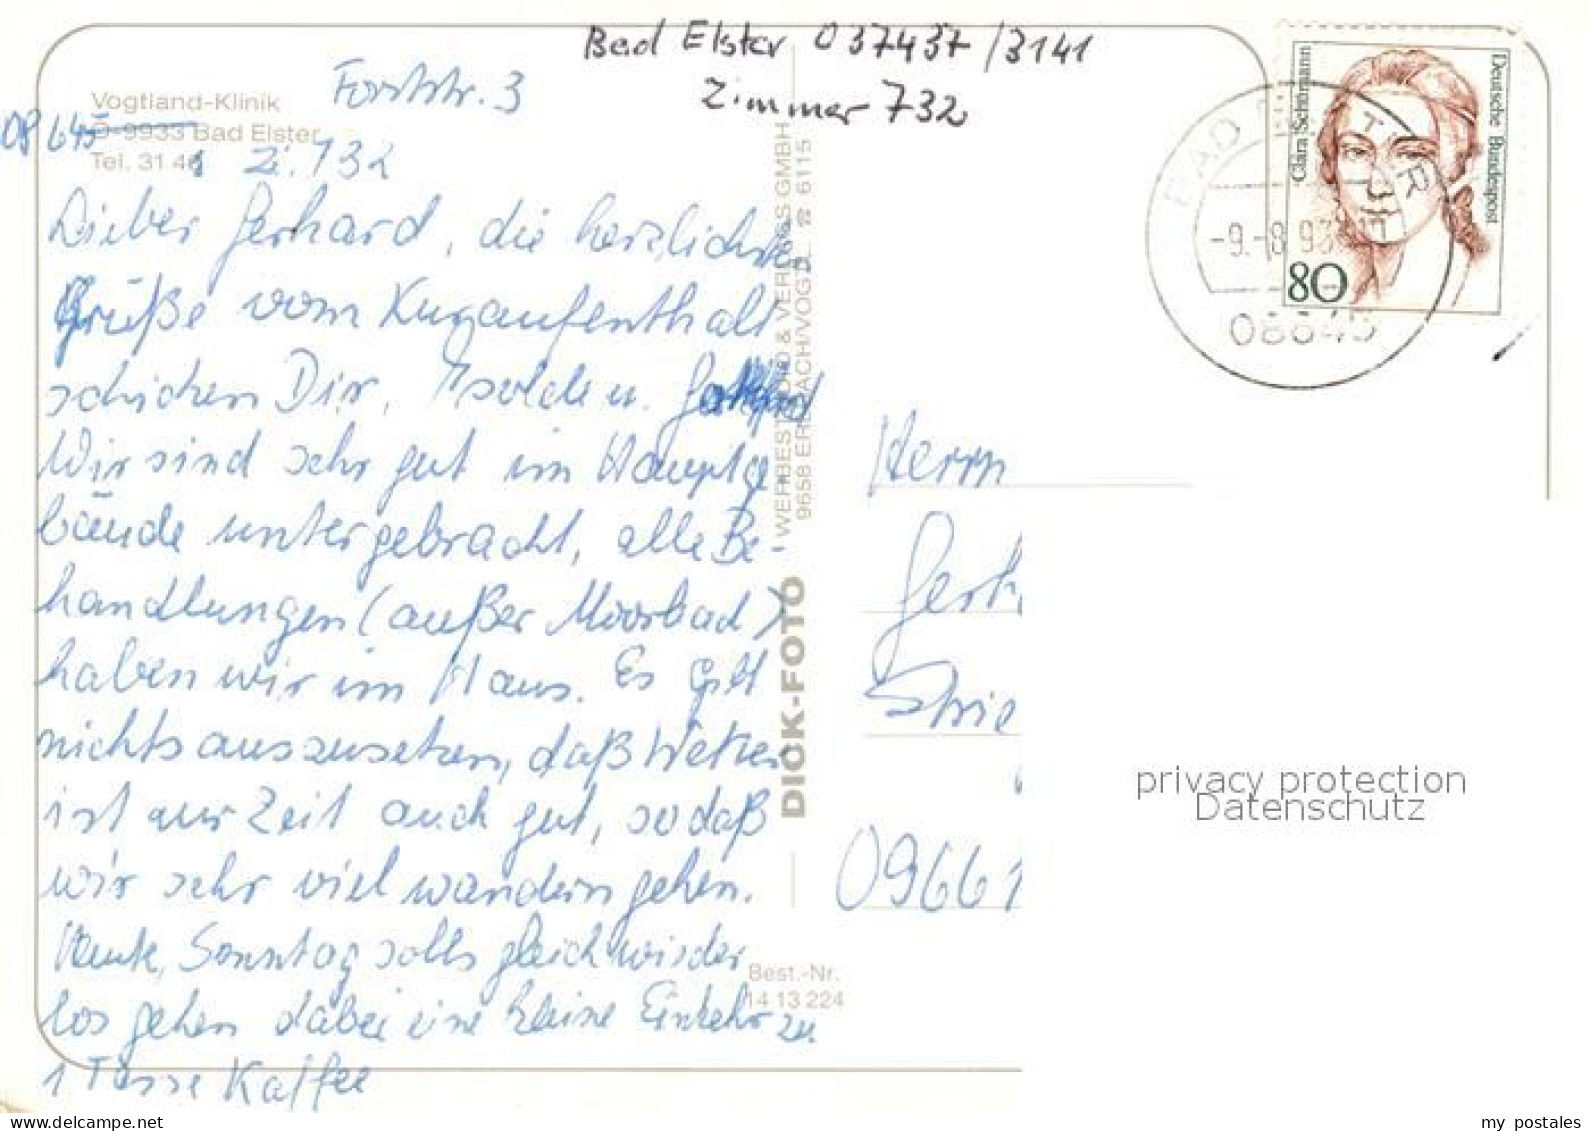 Bad Elster 037437/3141
Zimmer 732
Forststr. 3
Vogtland-Klinik
08645 D-9933 Bad Elster
Tel. 31 4
Zi. 732
Lieber Gerhard, die herzlichsten
Grüße vom Kuraufenthalt
schicken Dir, Isolde u.
Wir sind sehr gut im Hauptge
bäude untergebracht, alle Be-
handlungen (außer Moorbad)
haben wir im Haus. Es gibt
nichts auszusetzen, daß Wetter
ist zur Zeit auch gut, so daß
wir sehr viel wandern gehen.
Heute, Sonntag solls gleich wieder
los gehen dabei eine kleine Einkehr zu
1 Tasse Kaffee
DICK-FOTO
WERBESTUDIO & VERLAGS GMBH
9658 ERLBACH/VOGTL. ☎ 6115
Best.-Nr.
14 13 224
Clara Schumann
Deutsche Bundespost
80
BAD ELSTER
-9.-8.93
08645
Herrn
Gerh
09661
privacy protection
Datenschutz
my postales